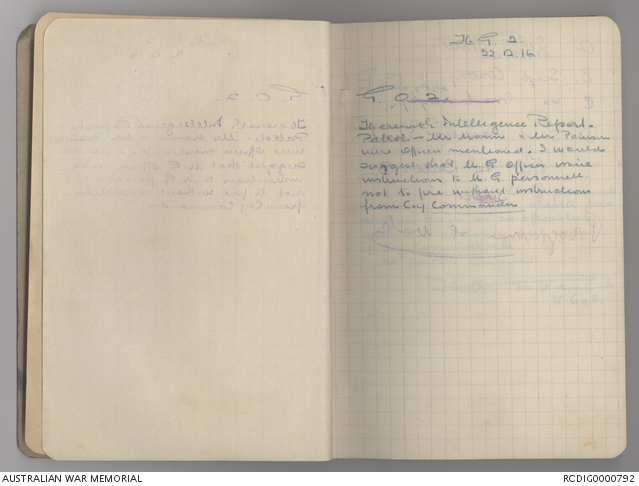 H G 2.
22.12.16
G. O. 2.
Herewith Intelligence Report.
Patrol - Mr Mann & Mr
were Officers mentioned. I would
suggest that M. G Officer issue
instructions to M. G. personnell
not to fire without instructions
from Coy Commander
AUSTRALIAN WAR MEMORIAL
RCDIG0000792